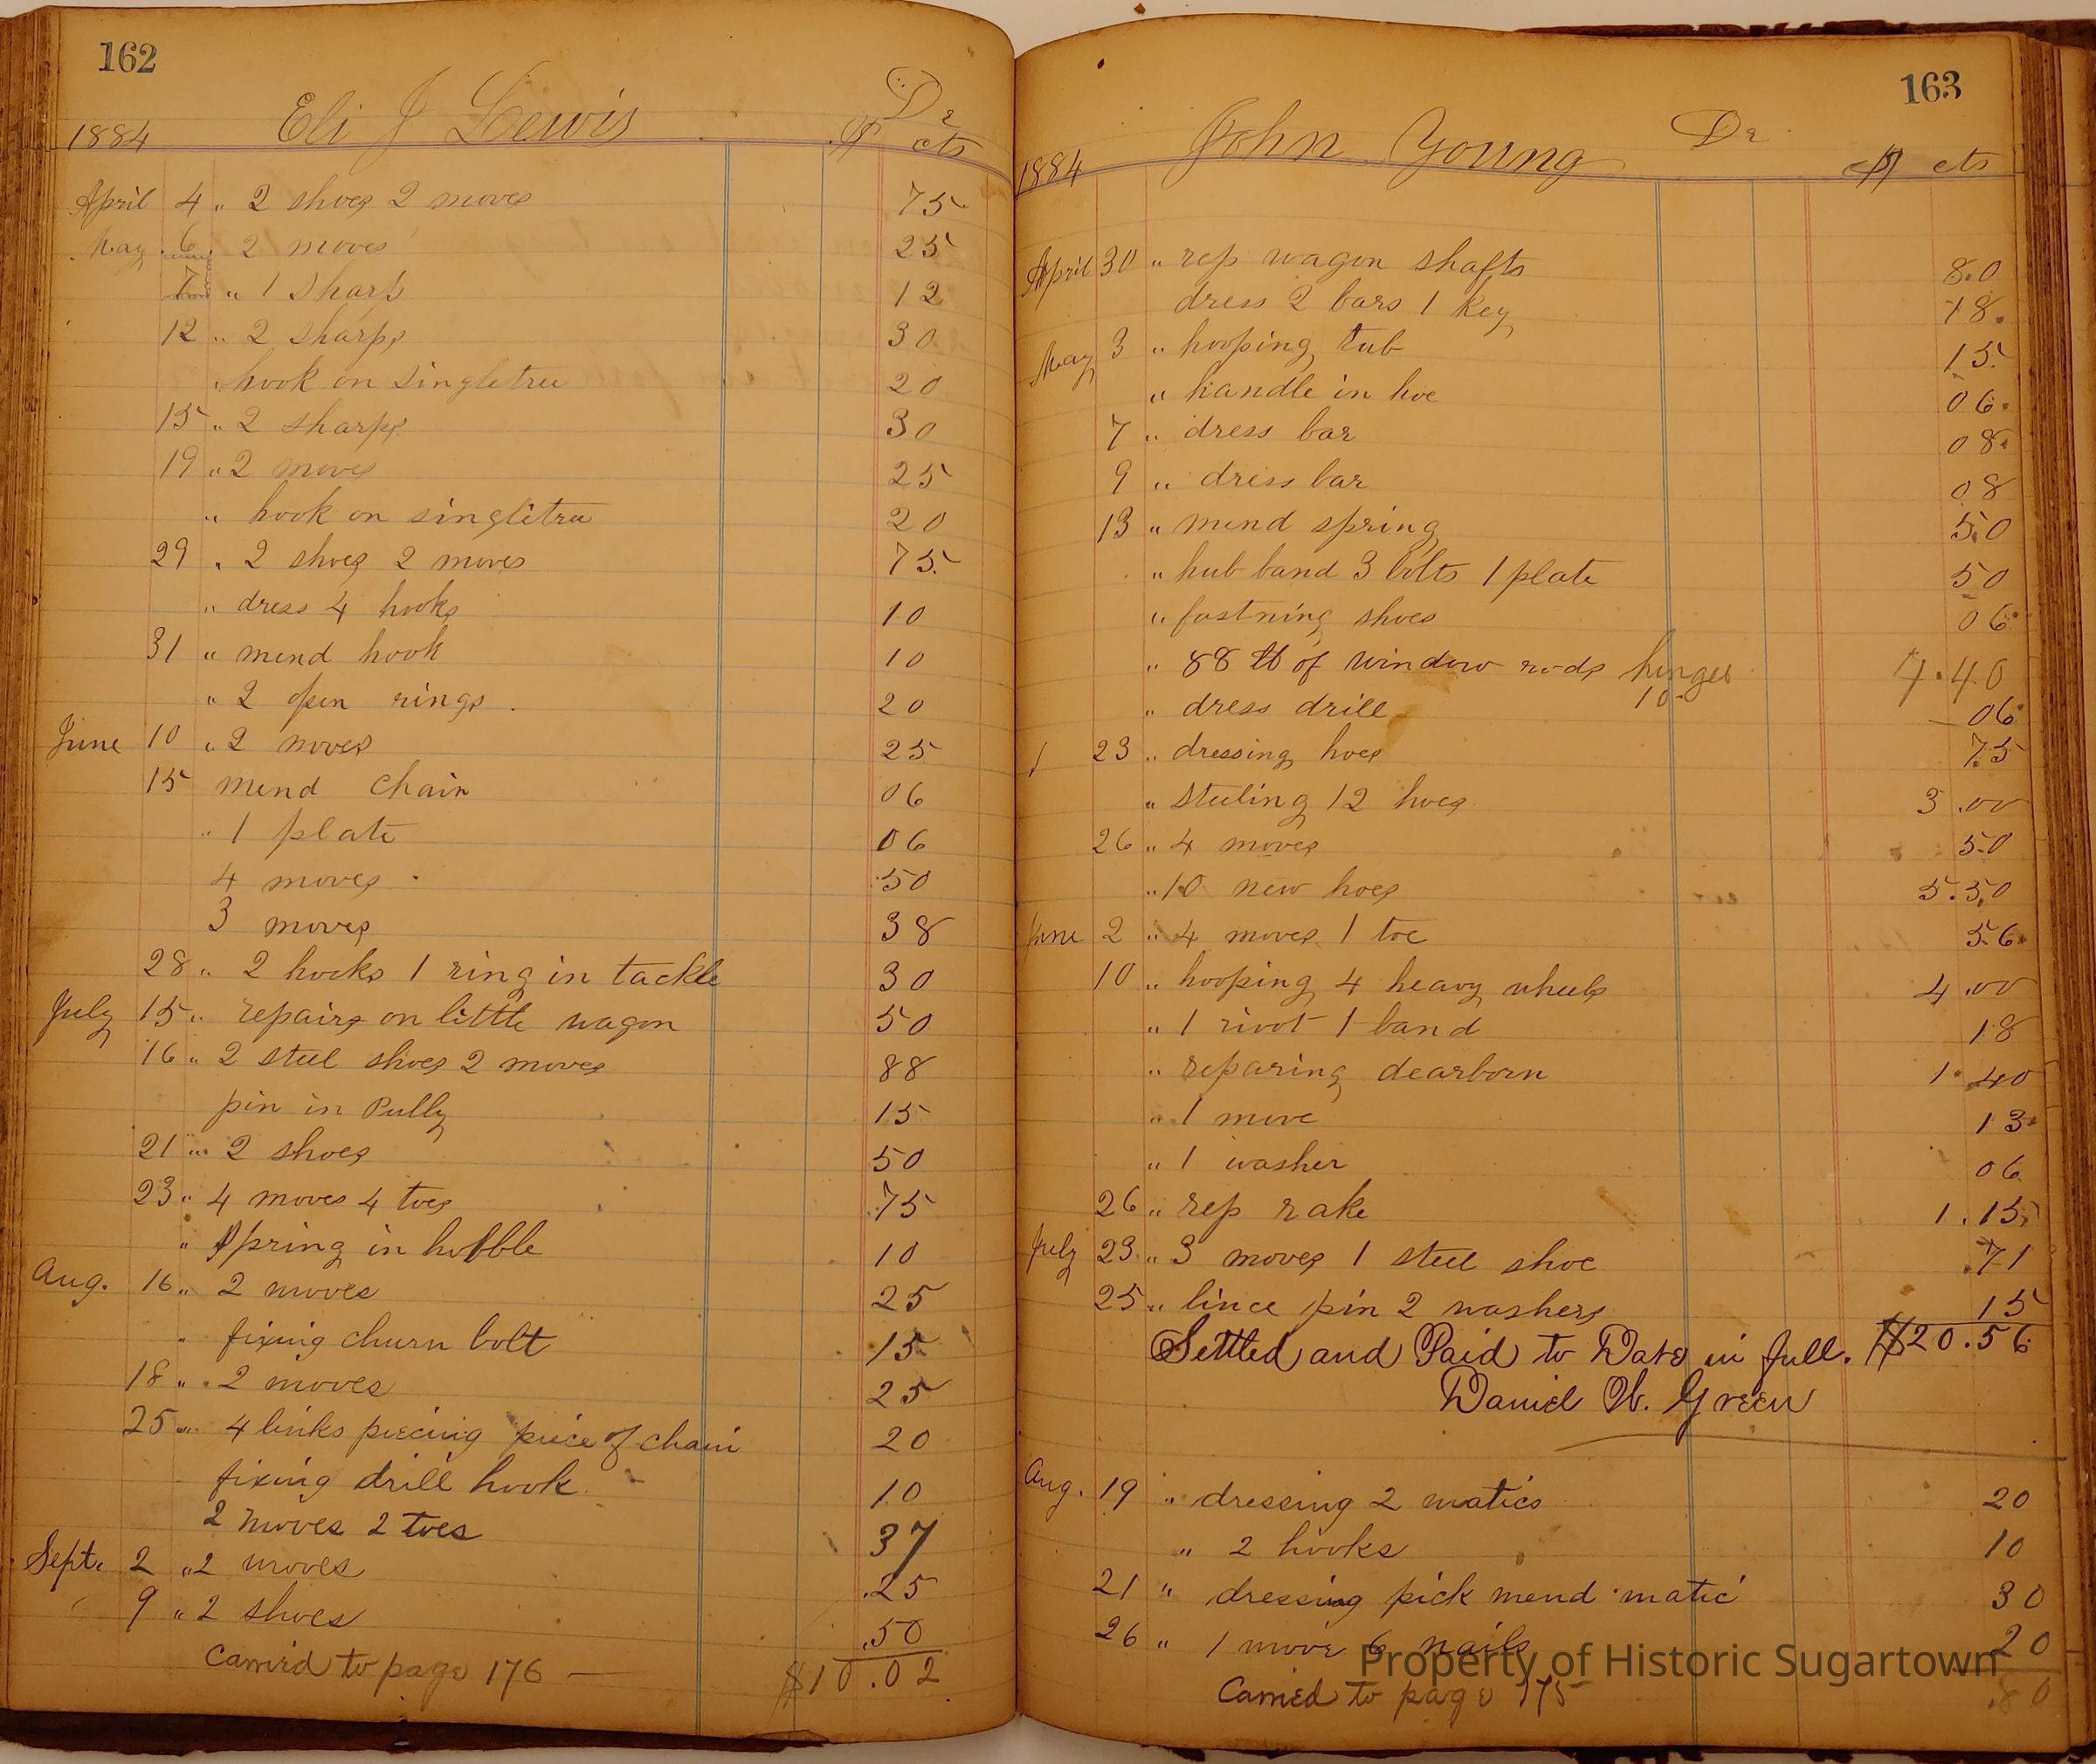 162
Eli J Lewis Dr
1884 $ cts
April 4 " 2 shoes 2 moves 75
May 6 2 moves 25
7 " 1 sharp 12
12 " 2 sharps 30
hook on singletree 20
15 " 2 sharps 30
19 " 2 moves 25
" hook on singletree 20
29 " 2 shoes 2 moves 75
" dress 4 hooks 10
31 " mend hook 10
" 2 open rings 20
June 10 " 2 moves 25
15 mend chain 06
" 1 plate 06
4 moves 50
3 moves 38
28 " 2 hooks 1 ring in tackle 30
July 15 " repairs on little wagon 50
16 " 2 steel shoes 2 moves 88
pin in Pully 15
21 " 2 shoes 50
23 " 4 moves 4 toes 75
" spring in hobble 10
Aug. 16 " 2 moves 25
" fixing churn bolt 15
18 " 2 moves 25
25 " 4 links piecing piece of chain 20
fixing drill hook 10
2 moves 2 toes 37
Sept. 2 " 2 moves .25
9 " 2 shoes .50
Carried to page 176 — $10.02
163
John Young Dr
1884 $ cts
April 30 " rep wagon shafts 80
dress 2 bars 1 key 18
May 3 " hooping tub 15
" handle in hoe 06
7 " dress bar 08
9 " dress bar 08
13 " mend spring 50
" hub band 3 bolts 1 plate 50
" fastning shoes 06
" 88 lb of window rods hinges 7.40
10
" dress drill 06
23 " dressing hoes 75
" steeling 12 hoes 3.00
26 " 4 moves 50
" 10 new hoes 5.50
June 2 " 4 moves 1 toe 56
10 " hooping 4 heavy wheels 4.00
" 1 rivot 1 band 18
" reparing dearborn 1.40
" 1 move 13
" 1 washer 06
26 " rep rake 1.15
July 23 " 3 moves 1 steel shoe .71
25 " lince pin 2 washers 15
Settled and Paid to Date in full. $20.56
Daniel W. Green
Aug. 19 " dressing 2 matics 20
" 2 hooks 10
21 " dressing pick mend matic 30
26 " 1 move 6 nails 20
Carried to page 175 .80
Property of Historic Sugartown